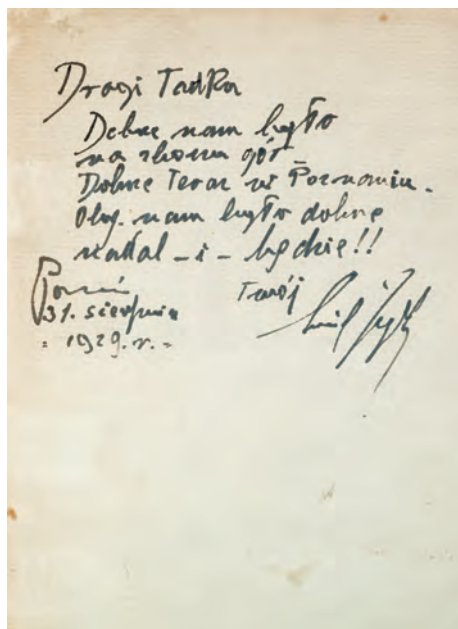 Drogi Tadku
Dobrze nam było
na gór
Dobrze teraz w Poznaniu.
Oby nam było dobrze
nadal - i - będzie!!
Poznań
31. sierpnia
= 1929. r. =
Twój
Emil